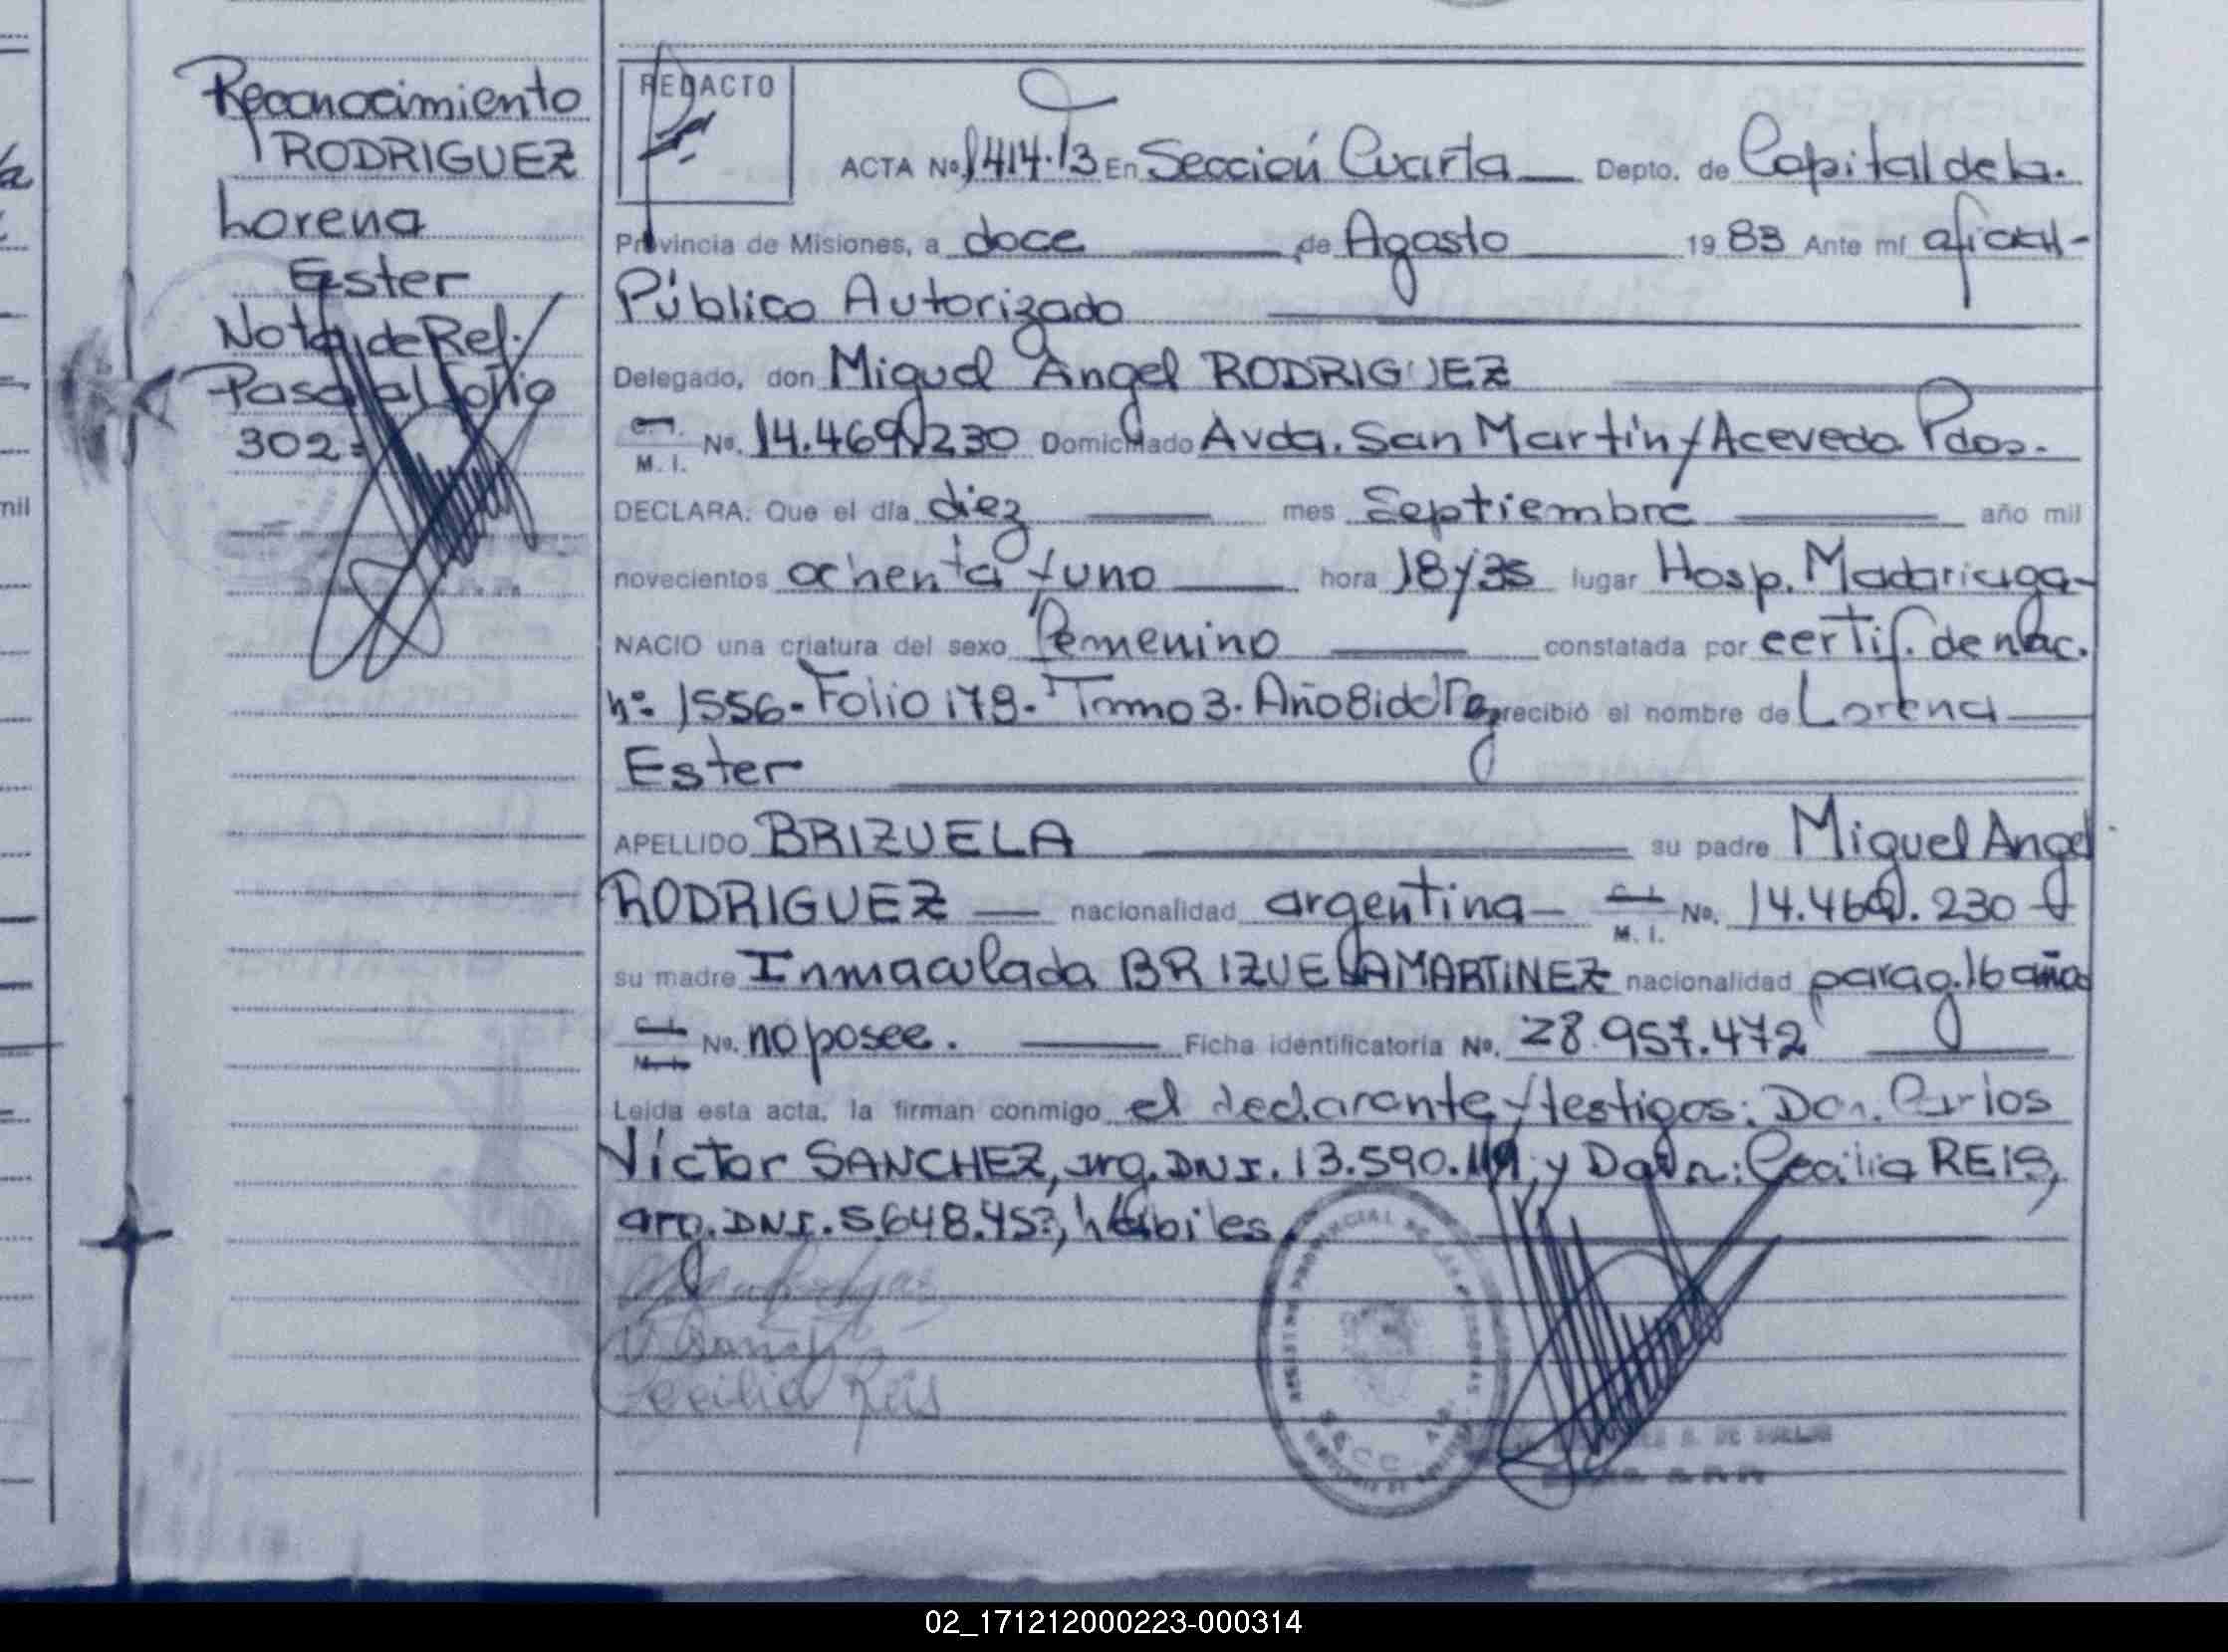 Reconocimiento
RODRIGUEZ
Lorena
Ester
Nota de Ref.
Pasa al folio
302=
REDACTO
ACTA No. 1414.T3 En Sección Cuarta Depto. de Capital de la.
Provincia de Misiones, a doce de Agosto 1983 Ante mí oficial-
Público Autorizado
Delegado, don Miguel Angel RODRIGUEZ
C.I. M.I. No. 14.469.230 Domiciliado Avda. San Martín y Acevedo Pdas.
DECLARA: Que el día diez mes Septiembre año mil
novecientos ochenta y uno hora 18y35 lugar Hosp. Madariaga-
NACIO una criatura del sexo femenino constatada por certif. de nac.
nº 1556- Folio 178- Tomo 3. Año 81 recibió el nombre de Lorena
Ester
APELLIDO BRIZUELA su padre Miguel Angel
RODRIGUEZ nacionalidad argentina- C.I. M.I. No. 14.469.230
su madre Inmaculada BRIZUELA MARTINEZ nacionalidad parag. 16 años
C.I. M.I. No. no posee. Ficha identificatoria No. 28.957.472
Leída esta acta, la firman conmigo el declarante y testigos: Don. Carlos
Víctor SANCHEZ, arg. DNI. 13.590. y Cecilia REIS,
arg. DNI. 5.648.453, hábiles.
Cecilia Reis
REGISTRO PROVINCIAL DE LAS PERSONAS
mil
02_171212000223-000314